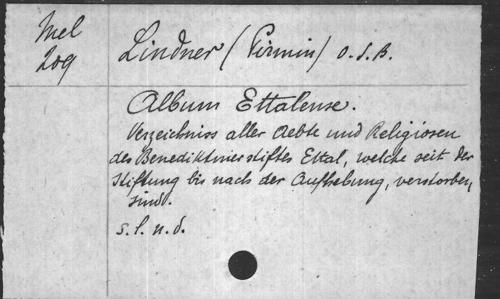 Mel
209
Lindner (Pirmin) O.S.B.
Album Ettalense.
Verzeichniss aller Aebte und Religiosen
des Benediktinerstiftes Ettal, welche seit der
Stiftung bis nach der Aufhebung, verstorben,
sind.
s.l.n.d.